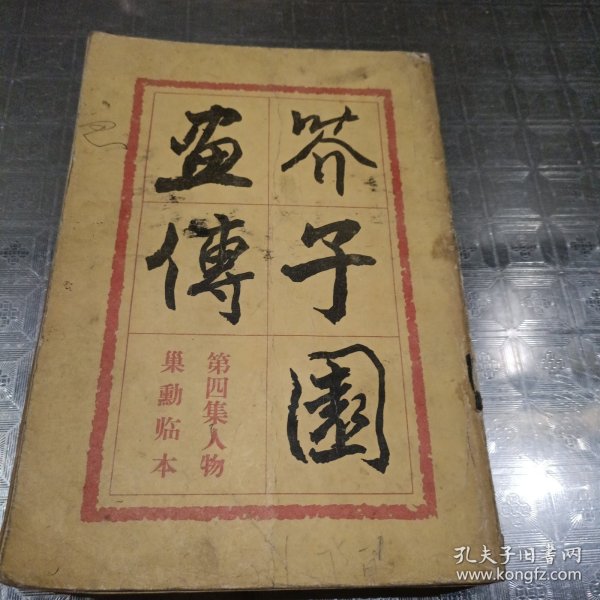 芥子園
畫傳
第四集人物
巢勳临本
孔夫子旧书网
www.kongfz.com